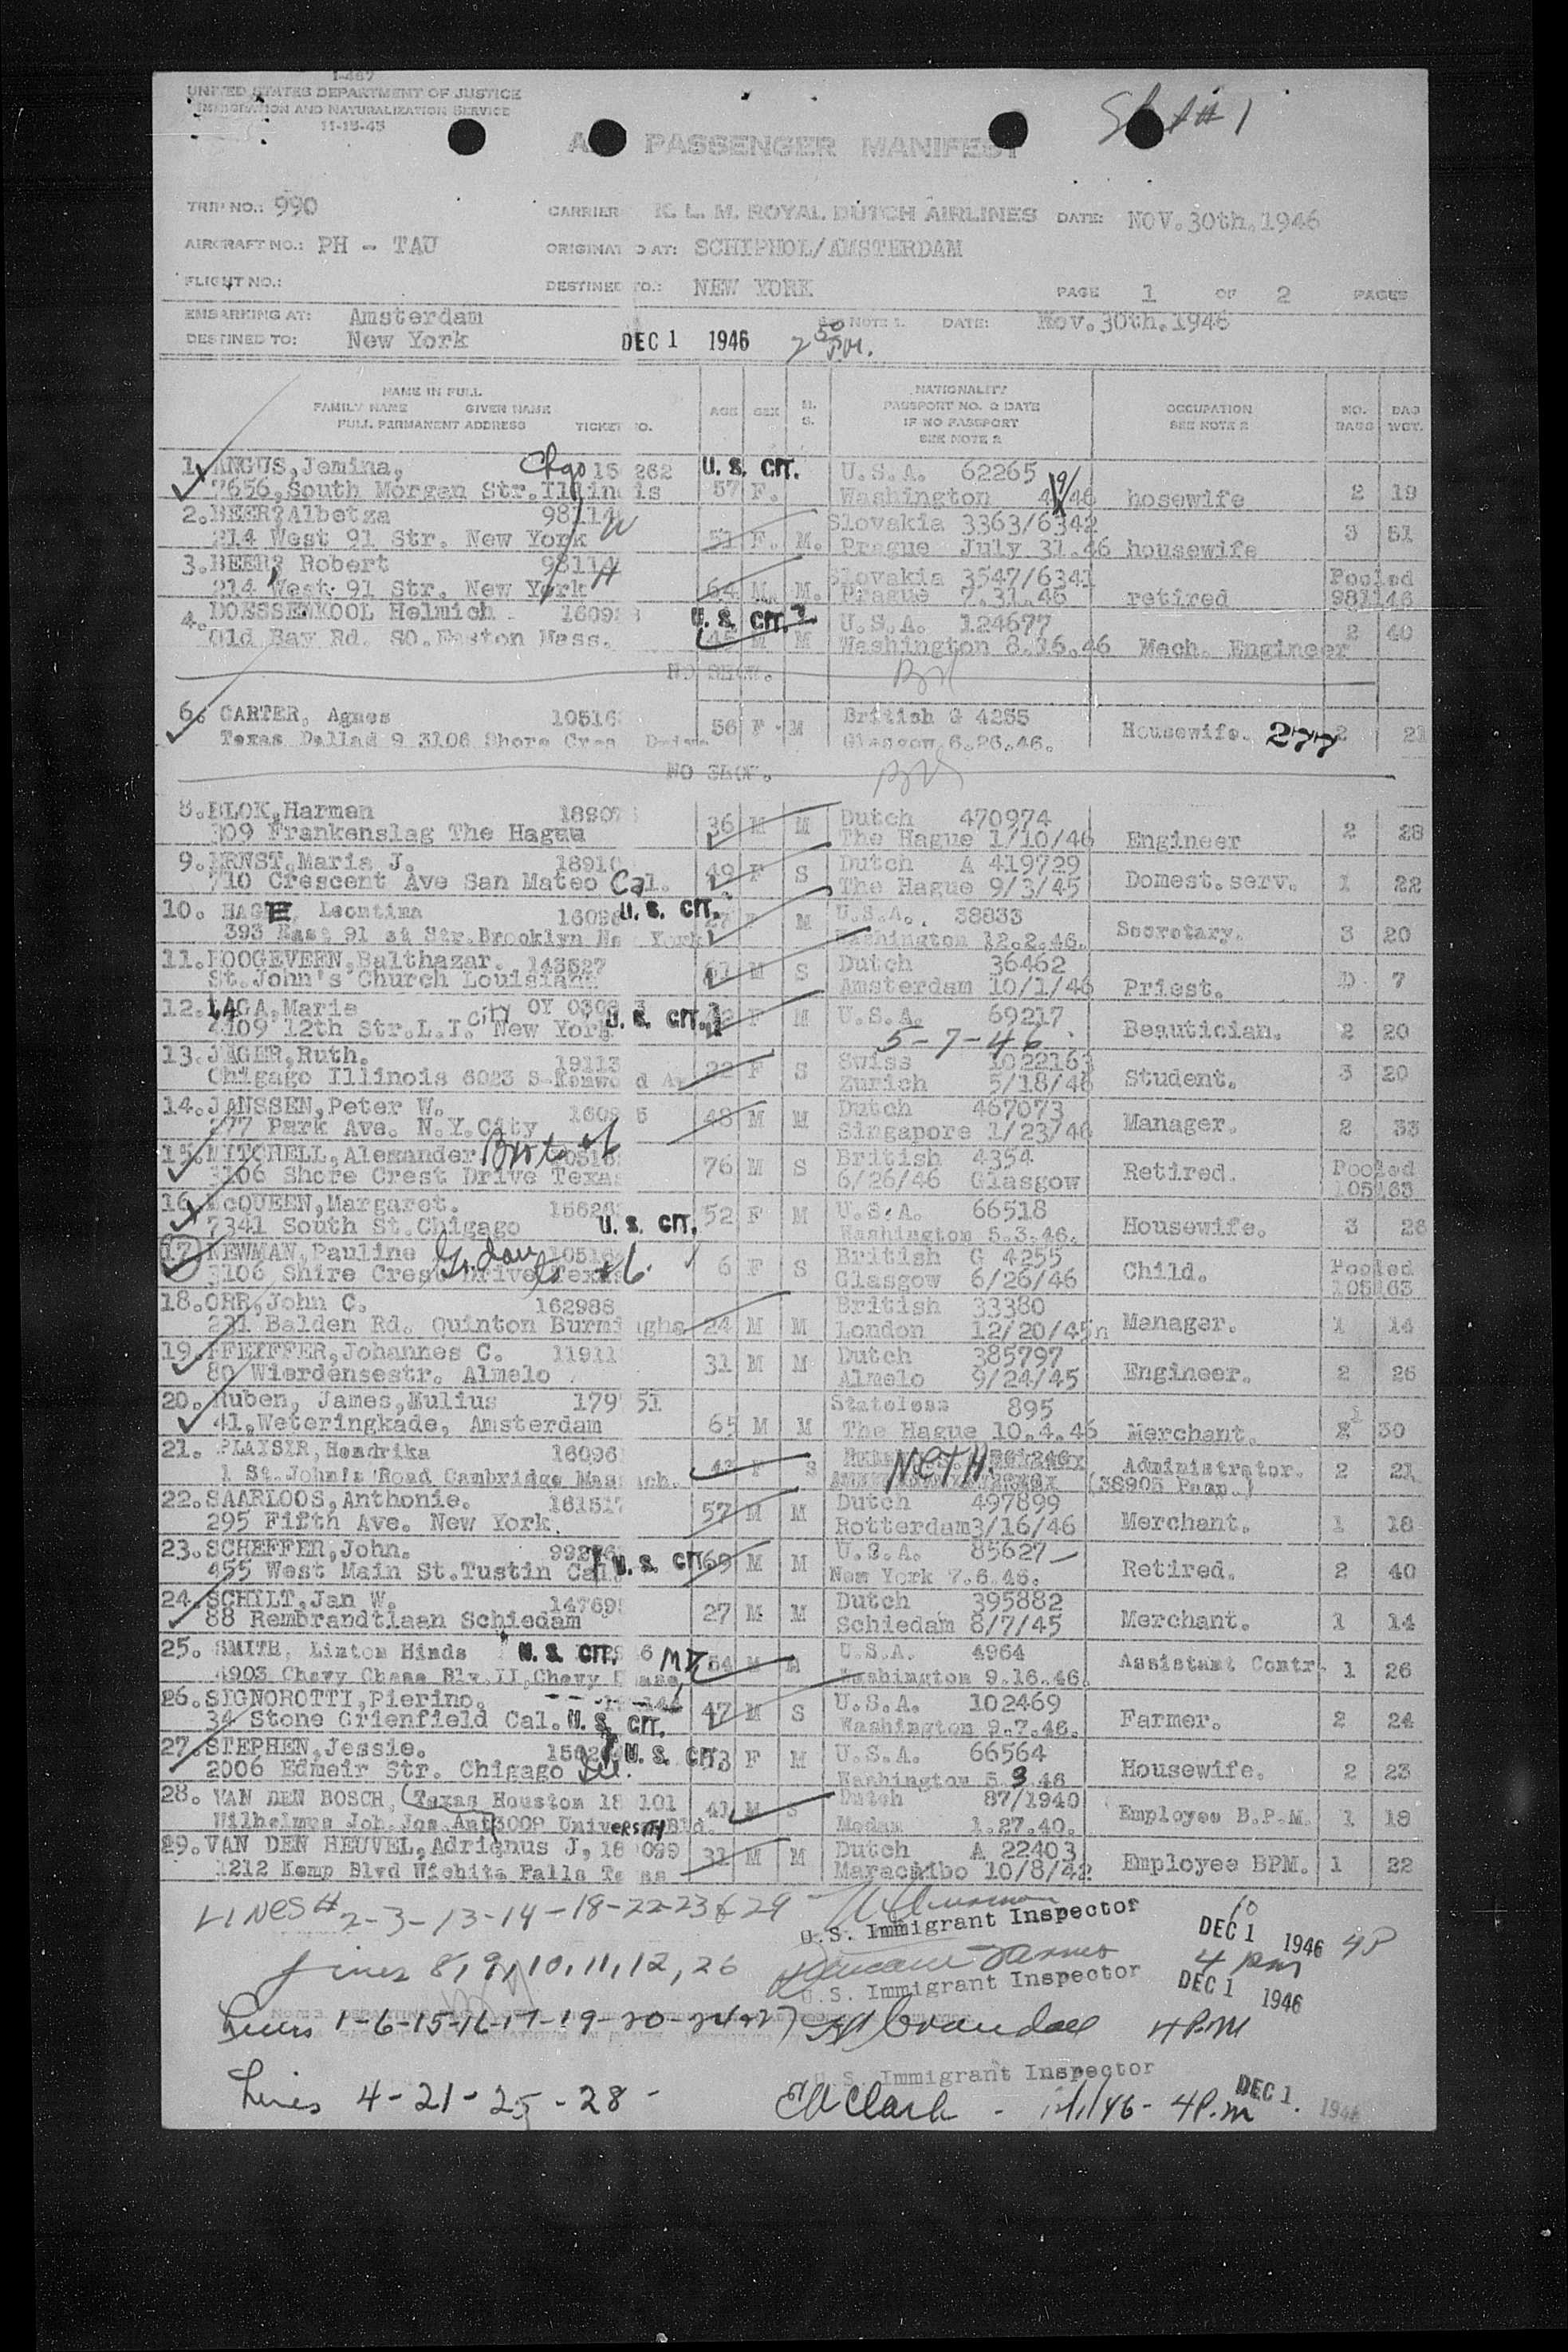 I-467
UNITED STATES DEPARTMENT OF JUSTICE
IMMIGRATION AND NATURALIZATION SERVICE
11-15-45
PASSENGER MANIFEST
# 1
TRIP NO.: 990 CARRIER K. L. M. ROYAL DUTCH AIRLINES DATE: NOV.30th.1946
AIRCRAFT NO.: PH - TAU ORIGINAT D AT: SCHIPHOL/AMSTERDAM
FLIGHT NO.: DESTINED TO.: NEW YORK PAGE 1 OF 2 PAGES
EMBARKING AT: Amsterdam NOTE 1. DATE: Nov.30th.1946
DESTINED TO: New York DEC 1 1946 2 50 P.M.
NAME IN FULL
FAMILY NAME GIVEN NAME
FULL PERMANENT ADDRESS TICKET NO. AGE SEX M. S. NATIONALITY PASSPORT NO. & DATE IF NO PASSPORT SEE NOTE 2 OCCUPATION SEE NOTE 2 NO. BAGS BAG WGT.
1. ANGUS, Jemina, Chgo 15 262 U. S. CIT. U.S.A. 62265
7656, South Morgan Str. Illinois 57 F. Washington hosewife 2 19
2. BEER, Albetza 98114 Slovakia 3363/6342
214 West 91 Str. New York 51 F. M. Prague July 31.46 housewife 3 51
3. BEER, Robert 98114 Slovakia 3547/6341 Pooled
214 West 91 Str. New York 64 M. M. Prague 7.31.46 retired 981146
4. DOESSENKOOL Helmich 1609 U. S. CIT. U.S.A. 124677
Old Bay Rd. SO. Easton Mass. 45 M M Washington 8.16.46 Mech. Engineer 2 40
NO SHOW.
6. CARTER, Agnes 10516 56 F M British G 4255
Texas Dallad 9 3106 Shore Cres Drive Glasgow 6.26.46. Housewife. 277 2 21
NO SHOW.
8. BLOK, Harman 18907 36 M M Dutch 470974
309 Frankenslag The Haguu The Hague 1/10/46 Engineer 2 28
9. ERNST, Maria J. 18910 49 F S Dutch A 419729
710 Crescent Ave San Mateo Cal. The Hague 9/3/45 Domest.serv. 1 22
10. HAGE, Leontina 16096 U. S. CIT. 27 F M U.S.A. 38833
393 East 91 st Str. Brooklyn New York Washington 12.2.46. Secretary. 3 20
11. HOOGEVEEN, Balthazar. 143527 61 M S Dutch 36462
St. John's Church Louisiana Amsterdam 10/1/46 Priest. 7
12. LAGA, Marie City OY 0308 U. S. CIT. F M U.S.A. 69217
4109 12th Str. L.I. New York 5-7-46 Beautician. 2 20
13. JAGER, Ruth. 19113 22 F S Swiss 1022163
Chigago Illinois 6023 S Kenwood Av Zurich 5/18/46 Student. 3 20
14. JANSSEN, Peter W. 1609 5 48 M M Dutch 467073
277 Park Ave. N.Y.City Singapore 1/23/46 Manager. 2 33
15. MITCHELL, Alexander 10516 76 M S British 4354 Pooled
3106 Shore Crest Drive Texas 6/26/46 Glasgow Retired. 105163
16. McQUEEN, Margaret. 15626 52 F M U.S.A. 66518
7341 South St. Chigago U. S. CIT. Washington 5.3.46. Housewife. 3 26
17. NEWMAN, Pauline 10516 6 F S British G 4255 Pooled
3106 Shire Crest Drive Texas Glasgow 6/26/46 Child. 105163
18. ORR, John C. 162988 24 M M British 33380
231 Balden Rd. Quinton Burmingha London 12/20/45 Manager. 1 14
19. PFEIFFER, Johannes C. 11911 31 M M Dutch 385797
80 Wierdensestr. Almelo Almelo 9/24/45 Engineer. 2 26
20. Ruben, James, Eulius 179 51 Stateless 895
41, Weteringkade, Amsterdam 65 M M The Hague 10.4.46 Merchant. 1 30
21. PLAYSIR, Hendrika 16096 43 F S NETH Administrator. 2 21
1 St. John's Road Cambridge Mass ch. (38905 Pemp.)
22. SAARLOOS, Anthonie. 16151 57 M M Dutch 497899
295 Fifth Ave. New York. Rotterdam 3/16/46 Merchant. 1 18
23. SCHEFFER, John. U. S. CIT. 69 M M U.S.A. 85627
455 West Main St. Tustin Cal. New York 7.6.46. Retired. 2 40
24. SCHILT, Jan W. 14769 27 M M Dutch 395882
88 Rembrandtlaan Schiedam Schiedam 8/7/45 Merchant. 1 14
25. SMITH, Linton Hinds U. S. CIT. 6 Md 54 M M U.S.A. 4964
4903 Chevy Chase Blv. II, Chevy Chase, Washington 9.16.46. Assistant Contr. 1 26
26. SIGNOROTTI, Pierino. 47 M S U.S.A. 102469
34 Stone Grienfield Cal. U. S. CIT. Washington 9.7.46. Farmer. 2 24
27. STEPHEN, Jessie. U. S. CIT. 73 F M U.S.A. 66564
2006 Edmeir Str. Chigago Ill. Washington 5.3.46 Housewife. 2 23
28. VAN DEN BOSCH, Texas Houston 18 101 41 M S Dutch 87/1940
Wilhelmus Joh. Jos. Ant 3009 University Bld. Medan 1.27.40. Employee B.P.M. 1 18
29. VAN DEN HEUVEL, Adrianus J, 18 099 31 M M Dutch A 22403
1212 Kemp Blvd Wichita Falls Texas Maracaibo 10/8/42 Employee BPM. 1 22
LINES # 2-3-13-14-18-22-23 & 29
U.S. Immigrant Inspector DEC 1 1946 4P
Lines 8, 9, 10, 11, 12, 26 4 pm
U.S. Immigrant Inspector DEC 1 1946
Lines 1-6-15-16-17-19-20-24-27 Crandall 4 P.M
U.S. Immigrant Inspector
Lines 4-21-25-28- EA Clark - 12/1/46 - 4 P.M DEC 1. 1946